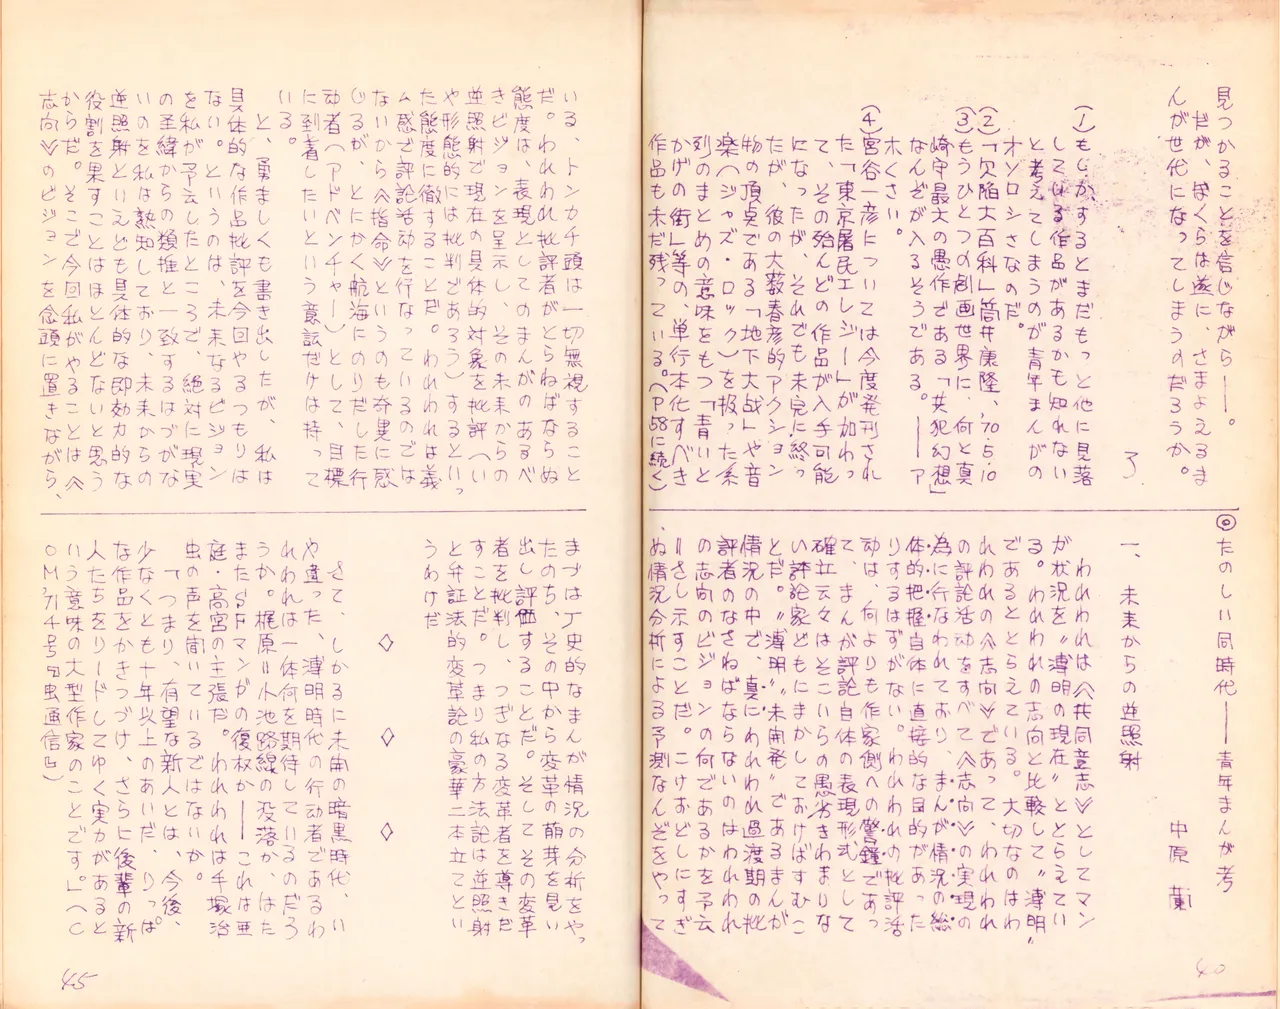 見つかることを信じながら――。
だが、ぼくらは遂に、さまよえるま
んが世代になってしまうのだろうか。
了
(1)もしかするとまだもっと他に見落
している作品があるかも知れない
と考えてしまうのが青年まんがの
オソロシさなのだ。
(2)「欠陥大百科」筒井康隆、'70・5・10
(3)もうひとつの劇画世界に、何と真
崎守最大の愚作である「共犯幻想」
なんぞが入るそうである。――ア
ホくさ。
(4)宮谷一彦については今度発刊され
た「東京屠民エレジー」が加わっ
て、その殆んどの作品が入手可能
になったが、それでも未完に終っ
たが、彼の大薮春彦的アクション
物の頂点である「地下大戦」や音
楽(ジャズ・ロック)を扱った系
列のまとめの意味をもつ「青いと
かげの街」等の、単行本化すべき
作品も未だ残っている。(P58に続く)
◎たのしい同時代――青年まんが考
中原 蘭
一、未来からの逆照射
われわれは〈共同意志〉としてマン
が状況を〝薄明の現在〟ととらえてい
る。われわれの志向と比較して〝薄明〟
であるととらえている。大切なのはわ
れわれの〈志向〉であって、われわれ
の評論活動をすべて〈志向〉の実現の
為に行なわれており、まんが情況の総
体的把握自体に直接的な目的があった
りするはずがない。われわれの批評活
動は、何よりも作家側への警鐘であっ
て、まんが評論自体の表現形式として
確立云々はそこいらの愚劣きわまりな
い評論家どもにまかしておけばすむこ
とだ。〝薄明〟〝未開発〟であるまんが
情況の中で、真にわれわれ過渡期の批
評者のなさねばならないのはわれわれ
の志向のビジョンの何であるかを予云
=さし示すことだ。こけおどしにすぎ
ぬ情況分析による予測なんぞをやって
40
いる、トンカチ頭は一切無視すること
だ。われわれ批評者がとらねばならぬ
態度は、表現としてのまんがのあるべ
きビジョンを呈示し、その未来からの
逆照射で現在の具体的対象を批評(い
や形態的には批判であろう)するといっ
た態度に徹することだ。われわれは義
ム感で評論活動を行なっているのでは
ないから〈指命〉というのも奇異に感
じるが、とにかく航海にのりだした行
動者(アドベンチャー)として、目標
に到着したいという意識だけは持って
いる。
と、勇ましくも書き出したが、私は
具体的な作品批評を今回やるつもりは
ない。というのは、未来なるビジョン
を私が予云したところで、絶対に現実
の圣緯からの類推と一致するはづがな
いのを私は熟知しており、未来からの
逆照射といえども具体的な即効力的な
役割を果すことはほとんどないと思う
からだ。そこで今回私がやることは〈
志向〉のビジョンを念頭に置きながら、
まづは丁史的なまんが情況の分析をやっ
たのち、その中から変革の萌芽を見い
出し評価することだ。そしてその変革
者を批判し、つぎなる変革者を導きだ
すことだ。つまり私の方法論は逆照射
と弁証法的変革論の豪華二本立てとい
うわけだ
◇ ◇ ◇
さて、しかるに未開の暗黒時代、い
や違った、薄明時代の行動者であるわ
れわれは一体何を期待しているのだろ
うか。梶原=小池路線の没落か、はた
またSFマンガの復权か――これは亜
庭・高宮の主張だ。われわれは手塚治
虫の声を聞いているではないか。
「つまり、有望な新人とは、今後、
少なくとも十年以上のあいだ、りっぱ
な作品をかきつづけ、さらに後輩の新
人たちをリードしてゆく実力があると
いう意味の大型作家のことです。」(C
OM'71/4号『虫通信』)
45